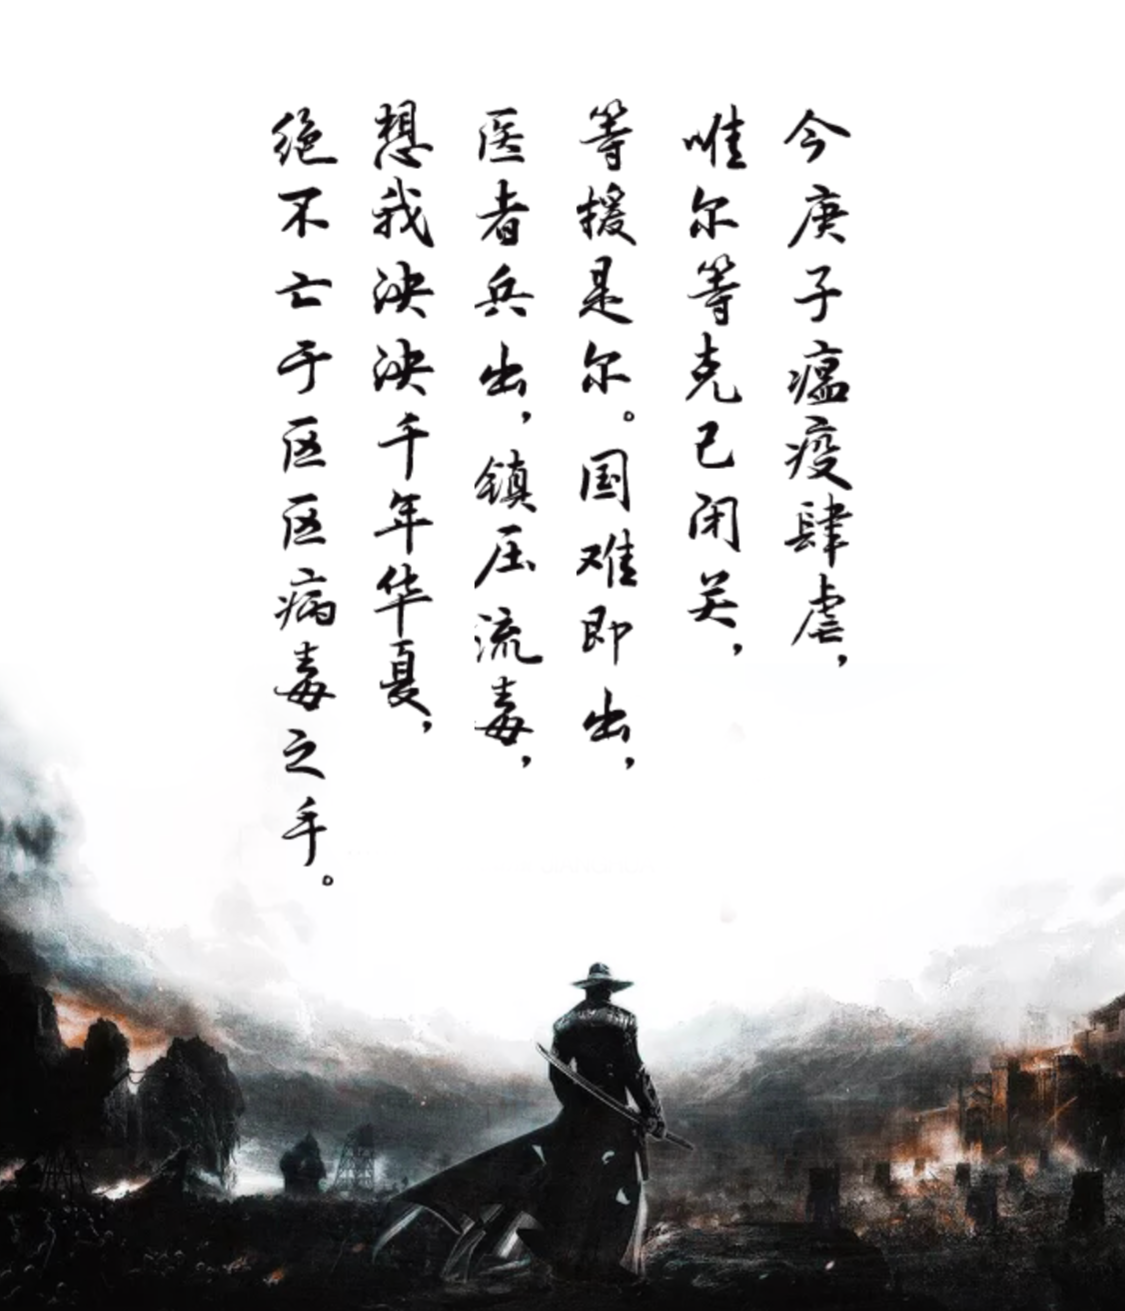 今庚子瘟疫肆虐，
唯尔等克己闭关，
等援是尔。国难即出，
医者兵出，镇压流毒，
想我泱泱千年华夏，
绝不亡于区区病毒之手。